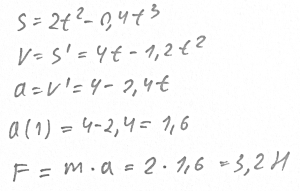 S = 2t² - 0,4t³
V = S' = 4t - 1,2t²
a = V' = 4 - 2,4t
a(1) = 4 - 2,4 = 1,6
F = m · a = 2 · 1,6 = 3,2 H